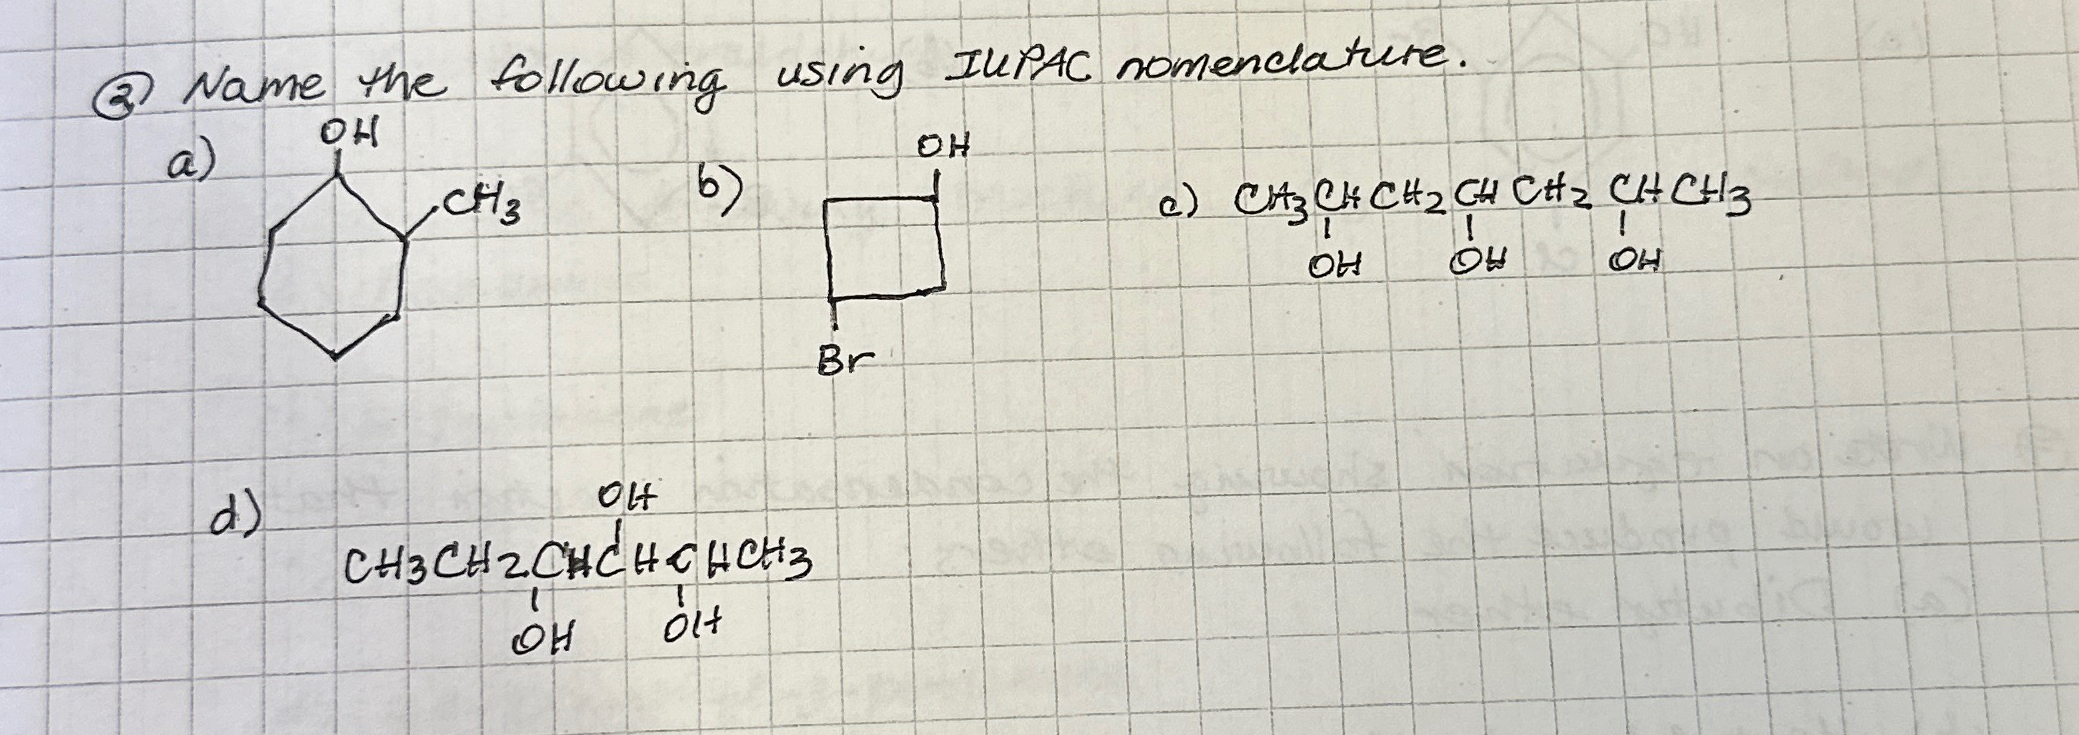 ② Name the following using IUPAC nomenclature.
a) OH
CH3
b) OH
Br
c) CH3CHCH2CHCH2CHCH3
OH OH OH
d) OH
CH3CH2CHCHCHCH3
OH OH